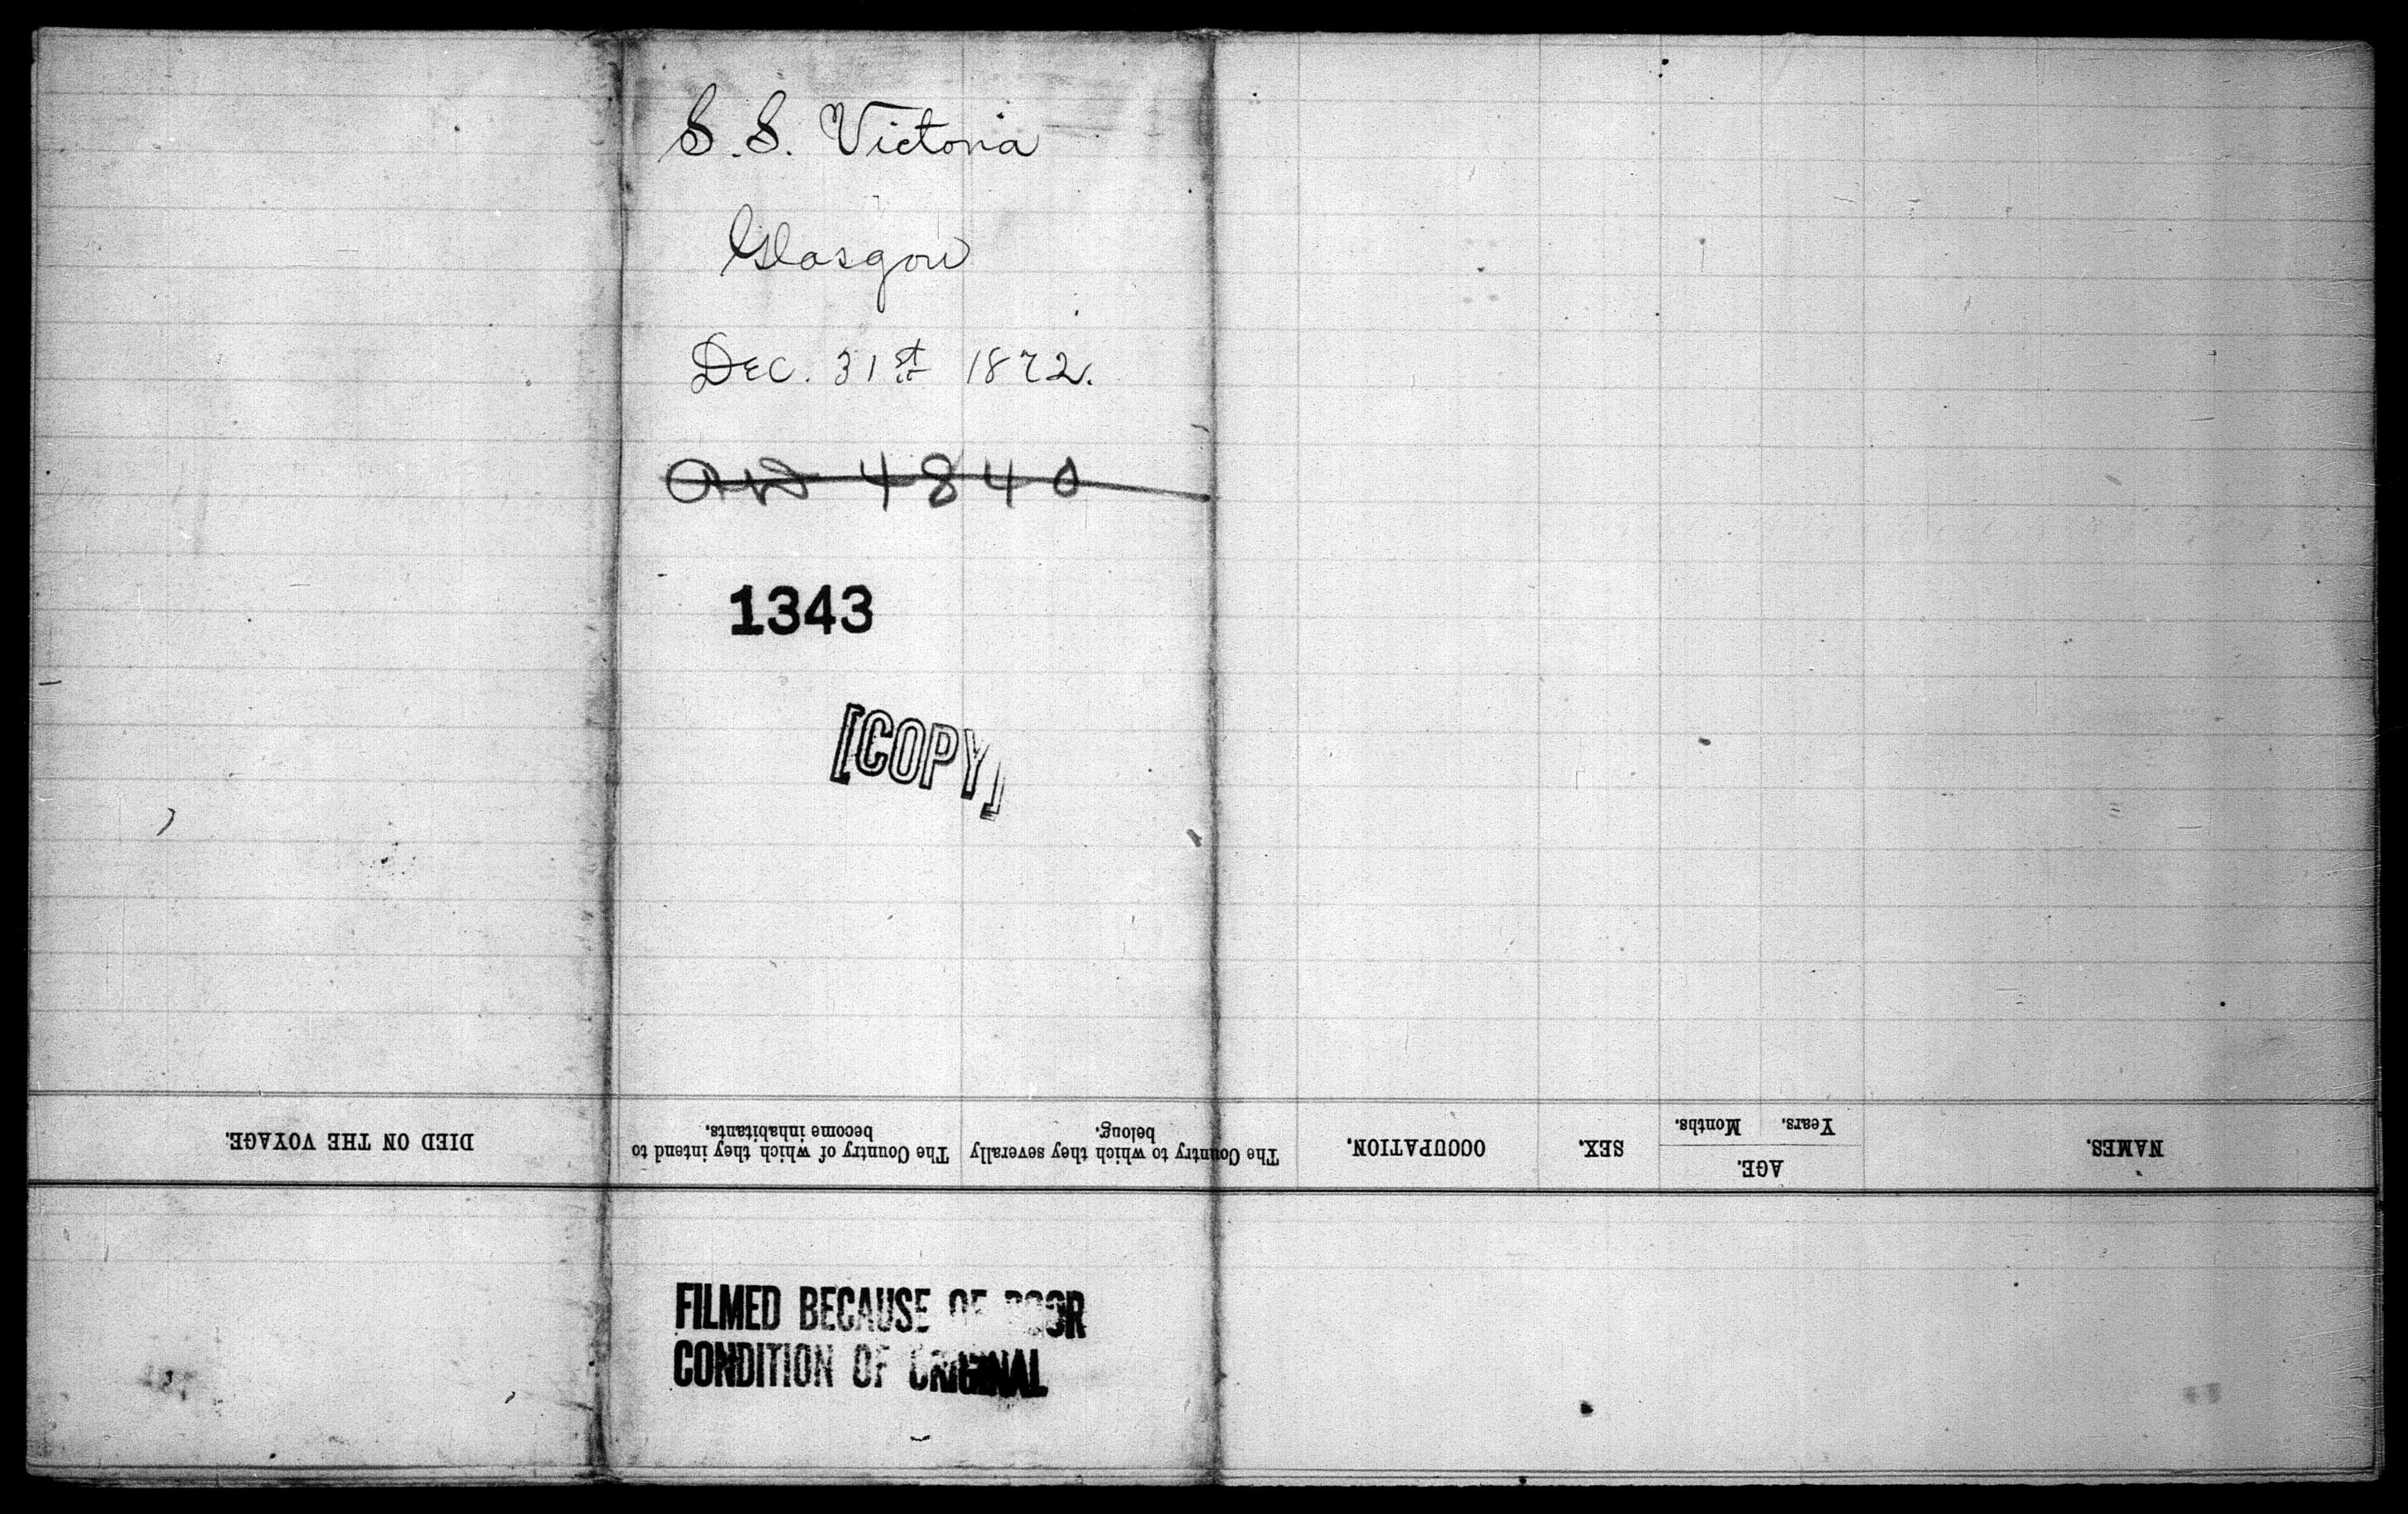 S.S. Victoria
Glasgow
Dec. 31st 1872.
4840
1343
[COPY]
NAMES.
AGE.
Years.
Months.
SEX.
OCCUPATION.
The Country to which they severally
belong.
The Country of which they intend to
become inhabitants.
DIED ON THE VOYAGE.
FILMED BECAUSE OF POOR
CONDITION OF ORIGINAL